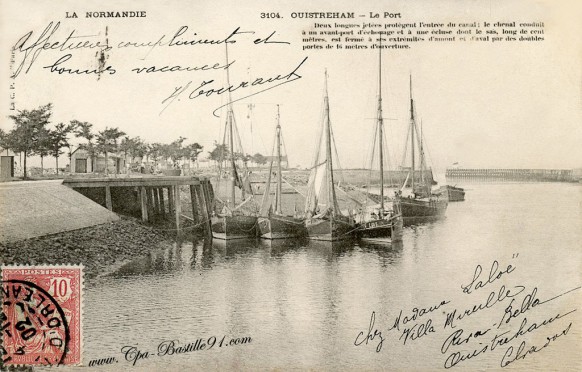 LA NORMANDIE
3104. OUISTREHAM – Le Port
Deux longues jetées protègent l'entrée du canal ; le chenal conduit
à un avant-port d'échouage et à une écluse dont le sas, long de cent
mètres, est fermé à ses extrémités d'amont et d'aval par des doubles
portes de 16 mètres d'ouverture.
Affectueux compliments et
bonnes vacances
Tourant
chez Madame Laloë
Villa Mireille
Riva-Bella
Ouistreham
Calvados
POSTES
10
ORLÉANS
03
www.Cpa-Bastille91.com